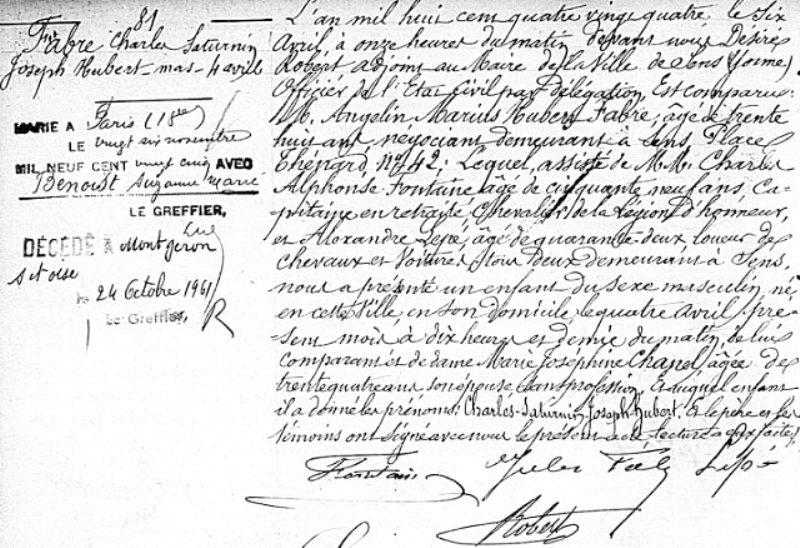 81
Fabre Charles Saturnin
Joseph Hubert - mas - 4 avril
MARIE A Paris (18e)
LE vingt six novembre
MIL NEUF CENT vingt cinq AVEC
Benoist Suzanne Marie
LE GREFFIER,
DÉCÉDÉ à Montgeron
S et Oise
le 24 Octobre 1961
Le Greffier,
L'an mil huit cent quatre vingt quatre le Six
Avril, à onze heures du matin devant nous Désiré
Robert adjoint au Maire de la Ville de Sens (Yonne)
Officier de l'Etat Civil par délégation, Est comparu:
M. Angelin Marius Hubert Fabre, âgé de trente
huit ans, négociant demeurant à Sens Place
Thénard No 42; Lequel, assisté de M.M. Charles
Alphonse Fontaine âgé de cinquante neuf ans, Ca-
pitaine en retraite Chevalier de la Légion d'honneur,
et Alexandre Lepé, âgé de quarante deux, loueur de
chevaux et Voitures, tous deux demeurant à Sens,
nous a présenté un enfant du Sexe masculin né
en cette Ville, en son domicile le quatre Avril pré-
-sent mois, à dix heures et demie du matin, de lui
comparant et de dame Marie Joséphine Chanel, âgée de
trente quatre ans son épouse sans profession, Et auquel enfant
il a donné les prénoms: Charles-Saturnin-Joseph-Hubert. Et le père et les
témoins ont signé avec nous le présent acte lecture a eux faite.
Fontaine Lepé
Robert